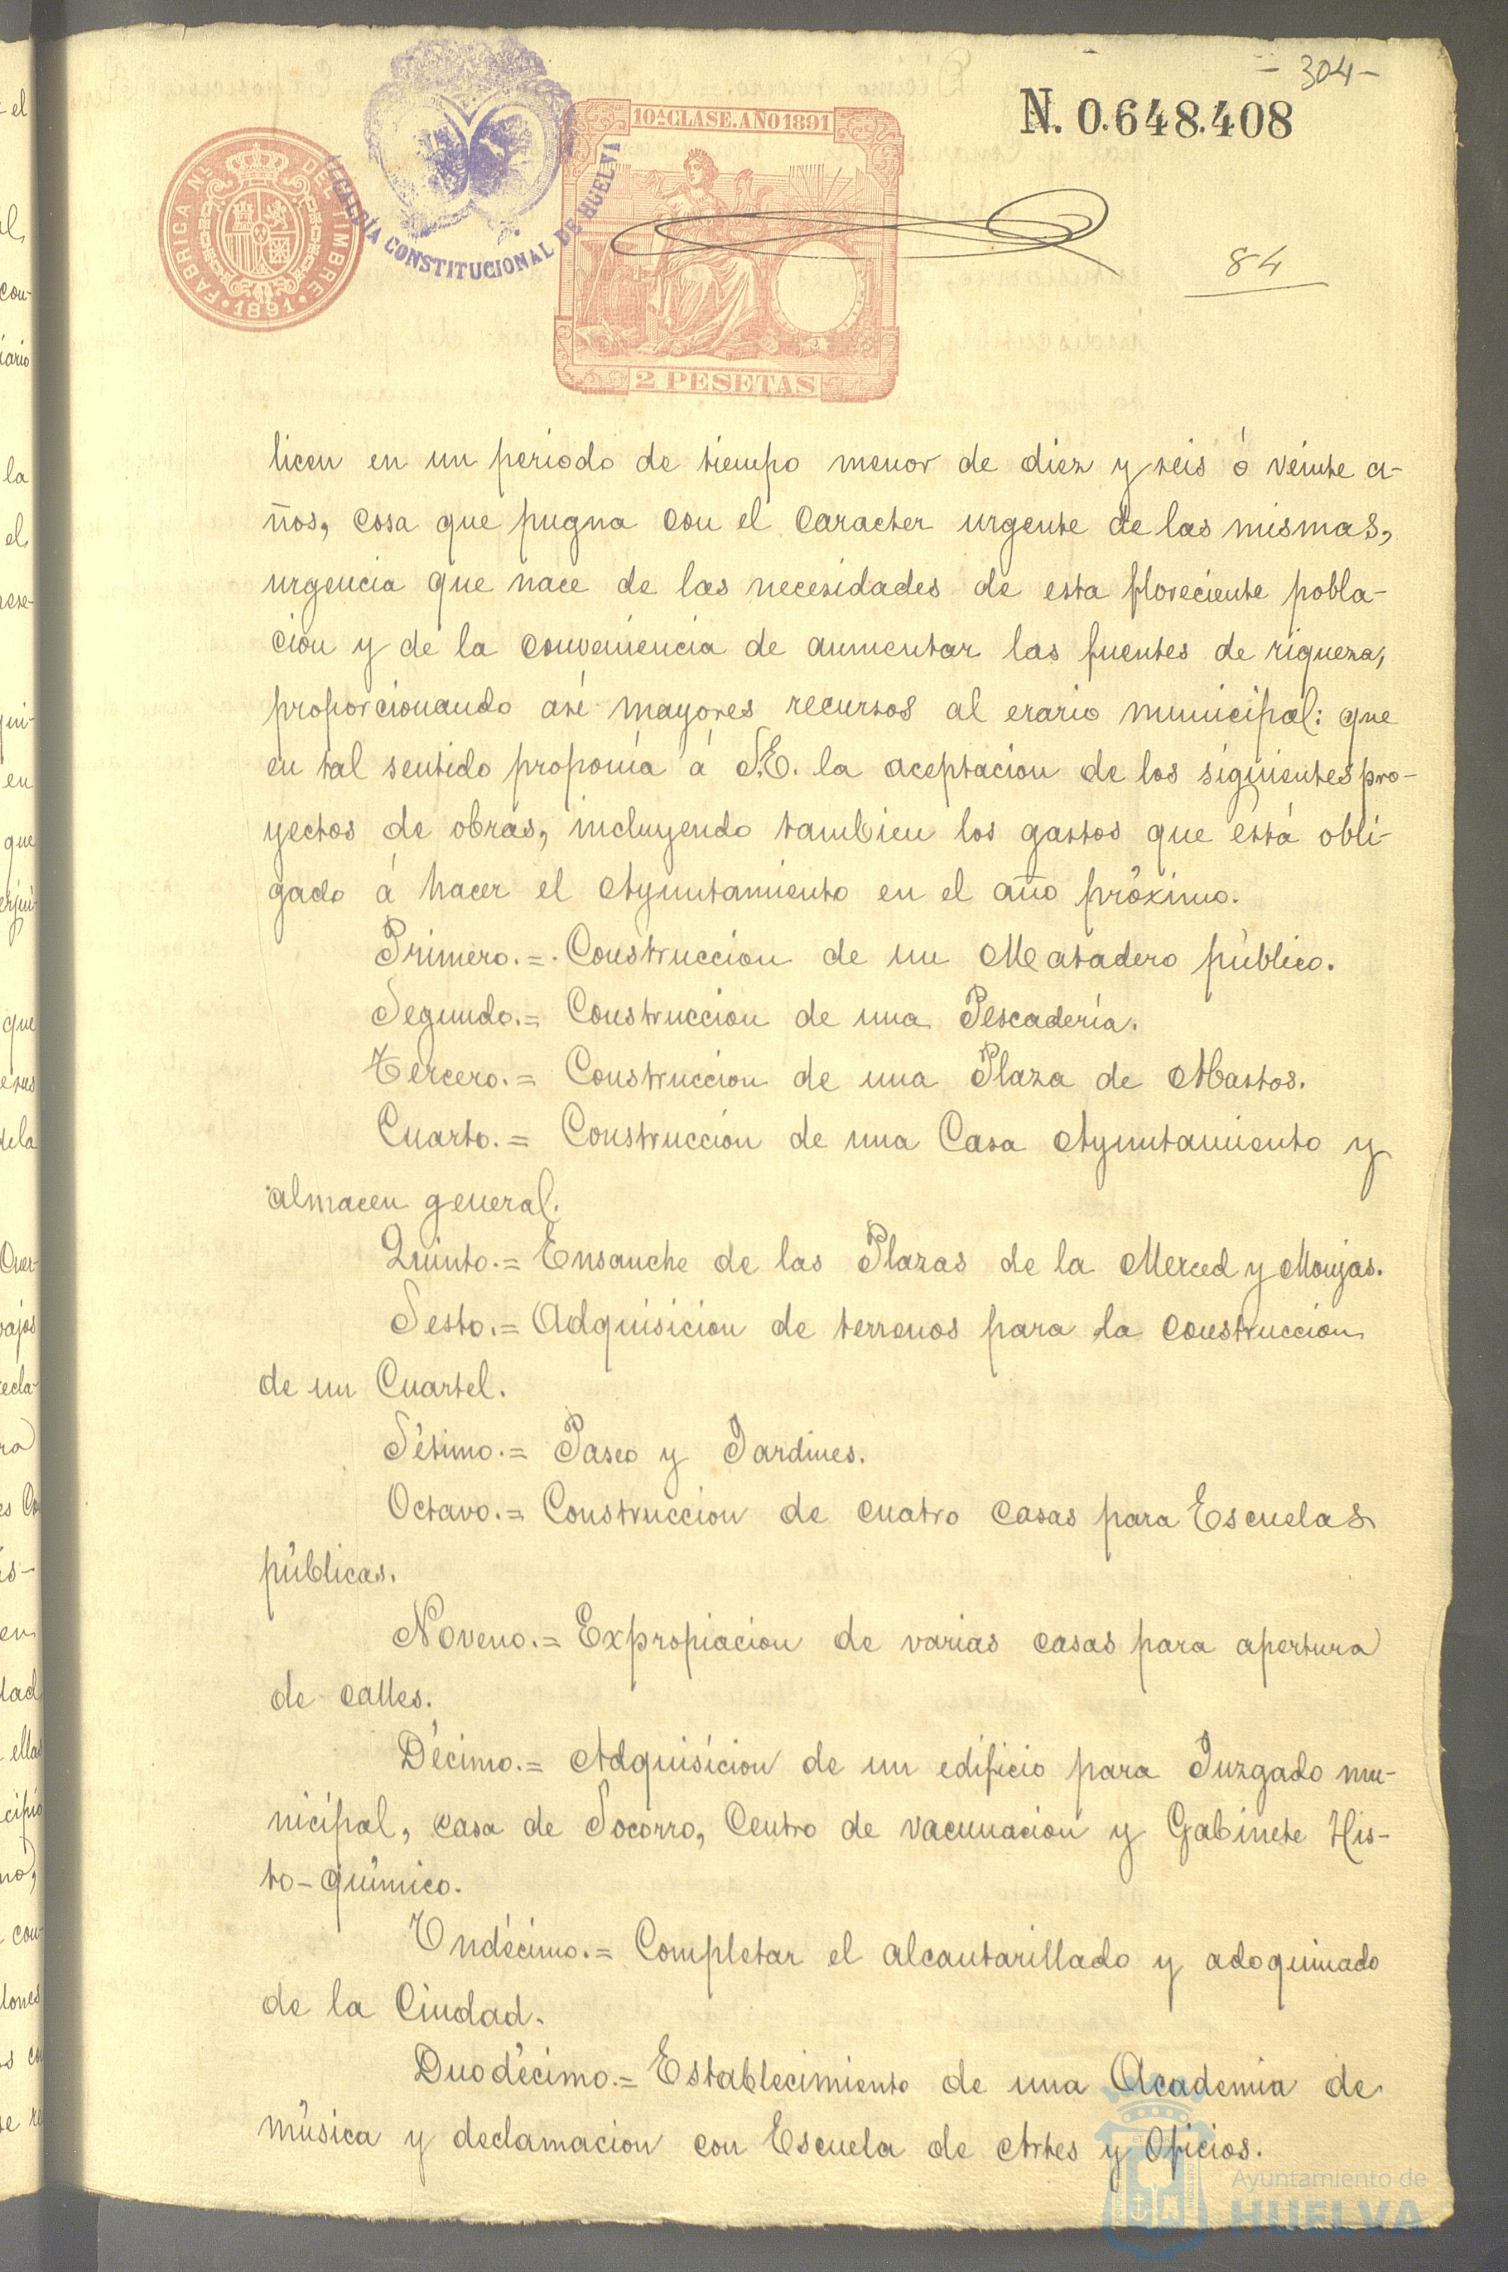 - 304 -
N. 0.648.408
10ª CLASE. AÑO 1891
FABRICA Nᴸ DEL TIMBRE
· 1891 ·
ALCALDÍA CONSTITUCIONAL DE HUELVA
84
2 PESETAS
licen en un periodo de tiempo menor de diez y seis ó veinte a-
ños, cosa que pugna con el caracter urgente de las mismas,
urgencia que nace de las necesidades de esta floreciente pobla-
cion y de la conveniencia de aumentar las fuentes de riqueza,
proporcionando asi mayores recursos al erario municipal: que
en tal sentido proponía á S.E. la aceptacion de los siguientes pro-
yectos de obras, incluyendo tambien los gastos que está obli-
gado á hacer el Ayuntamiento en el año próximo.
Primero.=. Construccion de un Matadero público.
Segundo.= Construccion de una Pescadería.
Tercero.= Construccion de una Plaza de Abastos.
Cuarto.= Construccion de una Casa Ayuntamiento y
almacen general.
Quinto.= Ensanche de las Plazas de la Merced y Monjas.
Sesto.= Adquisicion de terrenos para la construccion
de un Cuartel.
Sétimo.= Paseo y Jardines.
Octavo.= Construccion de cuatro casas para Escuelas
públicas.
Noveno.= Expropiacion de varias casas para apertura
de calles.
Décimo.= Adquisicion de un edificio para Juzgado mu-
nicipal, casa de Socorro, Centro de vacunacion y Gabinete His-
to-químico.
Undécimo.= Completar el alcantarillado y adoquinado
de la Ciudad.
Duodécimo.= Establecimiento de una Academia de
música y declamacion con Escuela de Artes y Oficios.
Ayuntamiento de
HUELVA